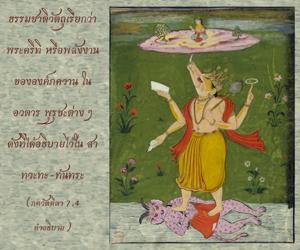 ธรรมชาติวัตถุเรียกว่า
พระศรีที หรือพลังงาน
ขององค์ภควาน ใน
อวตาร พุรุชะต่างๆ
ดังที่ได้อธิบายไว้ใน สา
ทวะทะ-ทันทระ
(ภควัตคีตา 7.4
คำอธิบาย)